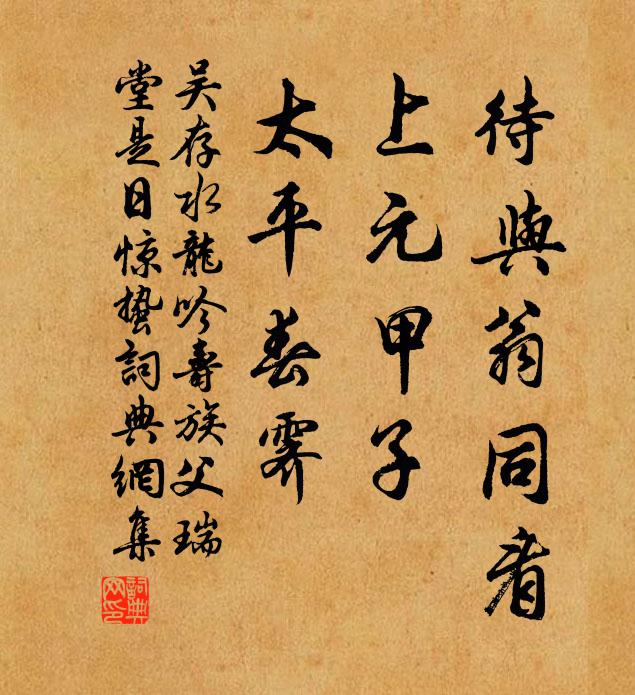 待與翁同看
上元甲子
太平春霽
吴存水龍吟壽族父瑞
堂是日惊蟄詞典網集
詞典网印